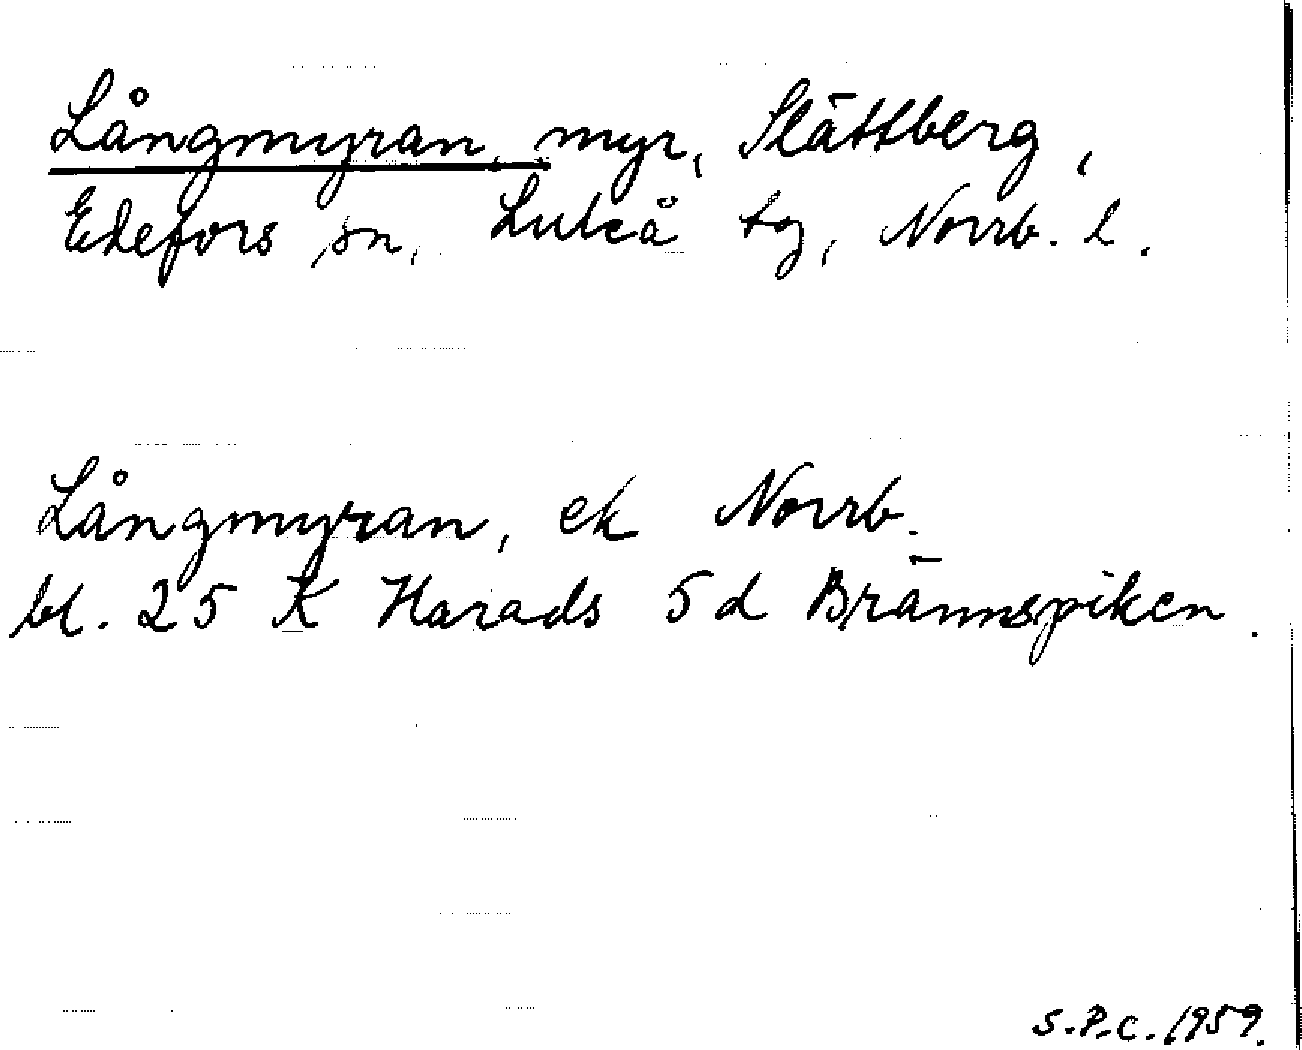 Långmyran, myr, Slättberg,
Edefors sn, Luleå tg, Norrb. l.
Långmyran, ek Norrb.
bl. 25 K Harads 5d Brännspiken.
S.P.C. 1959.